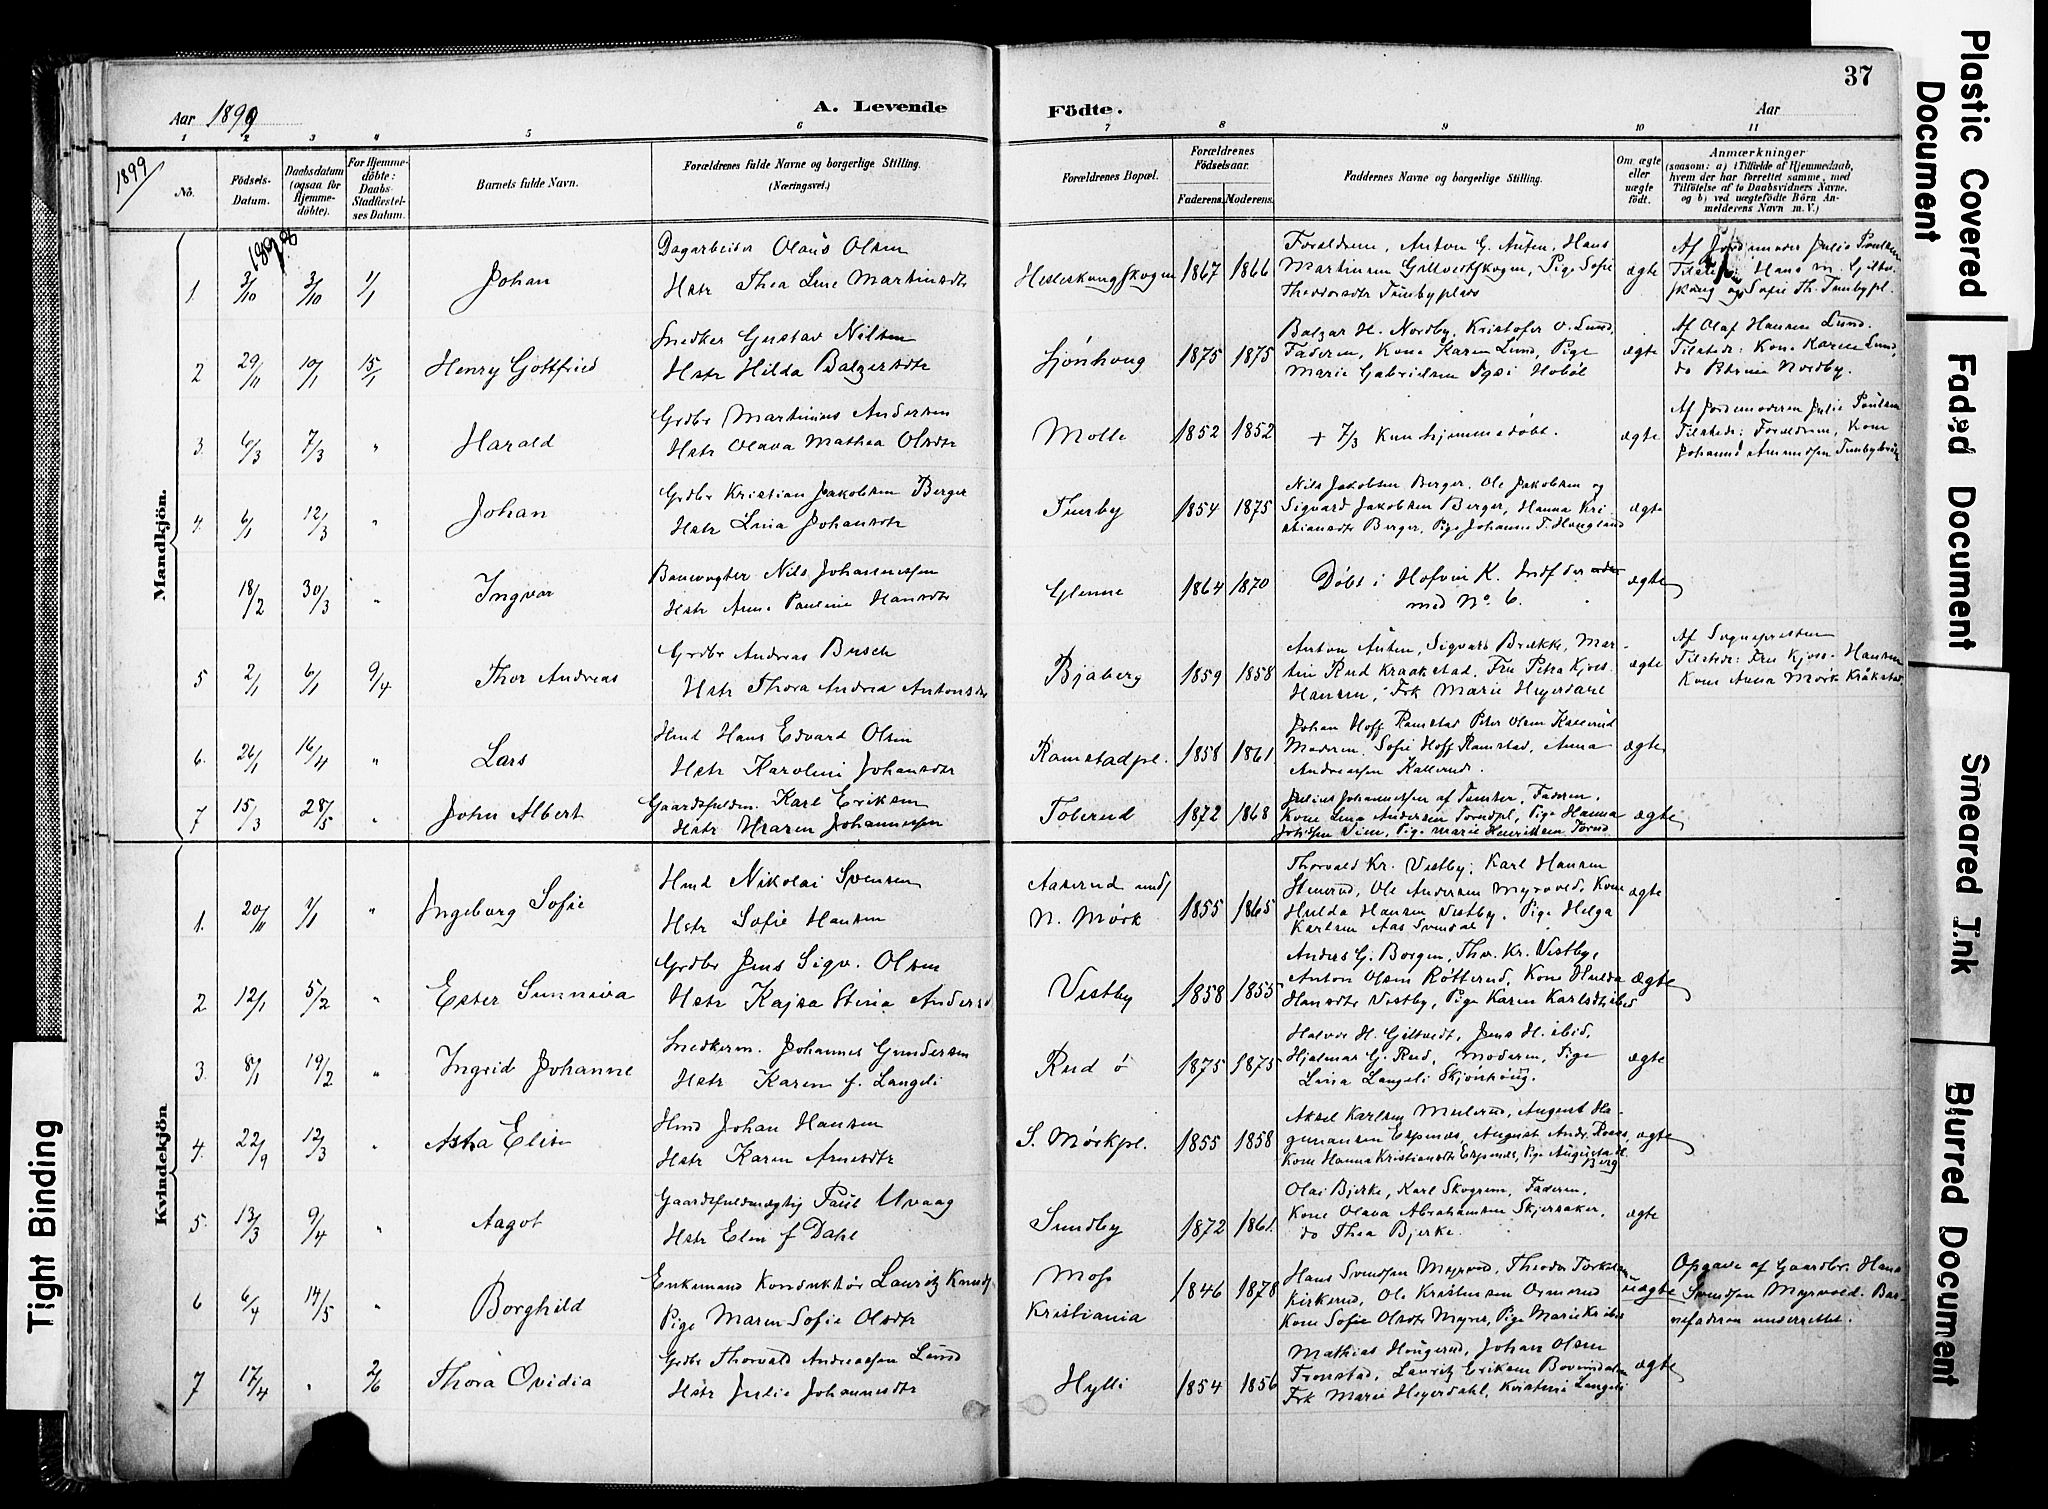 37
Aar 1899 A. Levende Födte. Aar
1 2 3 4 5 6 7 8 9 10 11
1899
No.
Födsels-
Datum.
Daabsdatum
(ogsaa for
Hjemme-
döbte).
For Hjemme-
döbte:
Daabs-
Stadfæstel-
ses Datum.
Barnets fulde Navn.
Forældrenes fulde Navne og borgerlige Stilling.
(Næringsvei.)
Forældrenes Bopæl.
Forældrenes
Födselsaar.
Faderens. Moderens.
Faddernes Navne og borgerlige Stilling.
Om ægte
eller
uægte
födt.
Anmærkninger
(saasom: a) i Tilfælde af Hjemmedaab,
hvem der har forrettet samme, med
Tilföielse af to Daabsvidners Navne.
og b) ved uægtefödte Börn An-
melderens Navn m. V.)
Mandkjön.
1. 3/10 3/10 1/1 Johan
Dagarbeider Olaus Olsen
Hstr Thea Line Martinsdtr
1867 1866
Forældrene, Anton G. Auten, Hans
Martinsen Giltvedtskogen, Pige Sofie
Theodorsdtr Tunbyplads
ægte
Af Jordemoder Julie Poulsen
2 29/11 10/1 15/1 Henry Gottfried
Snedker Gustav Nilsen
Hstr Hilda Balzersdtr
Sjönhoug 1875 1875
Balzar H. Nordby, Kristofer O. Lund,
Faderen, Kone Karen Lund, Pige
Marie Gabrielsen Hobøl
ægte
Af Olaf Hansen Lund.
Tilstede: Kone Karen Lund,
do Nordby.
3. 6/3 7/3 " Harald
Grdbr Martinius Andersen
Hstr Olava Mathea Olsdtr
Molle 1852 1852
+ 7/3 Kun hjemmedøbt.
ægte
Af Jordemoderen Julie Poulsen
Tilstede: Forældrene, Kone
4. 6/1 12/3 " Johan
Grdbr Kristian Jakobsen Berger
Hstr Lina Johansdtr
Tunby 1854 1875
Nils Jakobsen Berger, Ole Jakobsen og
Sigvard Jakobsen Berger, Hanna Kri-
stiansdtr Berger, Pige Johanne T. Hougland
ægte
18/2 30/3 " Ingvar
Banevogter Nils Johannessen
Hstr Anne Pauline Hansdtr
Glenne 1864 1870
Døbt i Hofvin K. Indf der
med No. 6.
ægte
5 2/1 6/1 9/4 Thor Andreas
Grdbr Andreas Busch
Hstr Thora Andrea Antonsdtr
Bjaberg 1859 1858
Anton Auten, Sigvart Brække, Mar-
tin Rud Kraakstad, Fru Petra Kjoss-
Hansen, Frk Marie Heyerdahl
ægte
Af Sognepresten
Tilstede: Fru Kjoss-Hansen
Kone Anna Mørk Kråkstad
6. 26/1 16/4 " Lars
Hmd Hans Edvard Olsen
Hstr Karoline Johansdtr
Ramstadpl. 1858 1861
Johan Hoff Ramstad Peter Olsen Kallerud
Moderen, Sofie Hoff Ramstad, Anna
Andreassen Kallerud.
ægte
7 15/3 28/5 " John Albert
Gaardsfuldm. Karl Eriksen
Hstr Maren Johannessen
Toberud 1872 1868
Julius Johannessen af Tomter, Faderen,
ægte
Kvindekjön
1. 20/11 1/1 " Ingeborg Sofie
Hmd Nikolai Svensen
Hstr Sofie Hansen
Aaserud und/
N. Mørk 1855 1865
Thorvald Kr. Vestby, Karl Hansen
Stenerud, Ole Andersen Myrvold, Kone
Hulda Hansen Vestby, Pige Helga
Karlsen Aas Svendal
ægte
2 12/1 5/2 " Ester Sunniva
Grdbr Jens Sigv. Olsen
Hstr Kajsa Stina Andersd
Vestby 1858 1855
Anders G. Borgen, Thv. Kr. Vestby,
Anton Olsen Røtterud, Kone Hulda
Hansdtr Vestby, Pige Karen Karlsdtr ibid
ægte
3. 8/1 19/2 " Ingrid Johanne
Snedkerm. Johannes Gundersen
Hstr Karen f. Langeli
Rud ø 1875 1875
Halvor H. Giltvedt, Jens H. ibid,
Hjalmar G. Rud, Moderen, Pige
Lina Langeli Skjönhoug.
ægte
4. 22/9 12/3 " Asta Elise
Hmd Johan Hansen
Hstr Karen Arnesdtr
S. Mørkpl. 1855 1858
Aksel Karlsen Mulerud, August Ha-
gunansen Espenes, August Andr. Roaas,
Kone Hanna Kristiansdtr Espenes, Pige Augusta H.
Berg
ægte
5. 13/3 9/4 " Aagot
Gaardsfuldmægtig Paul Uvaag
Hstr Elen f Dahl
Sundby 1872 1861.
Olai Bjerke, Karl Skogrem, Faderen,
Kone Olava Abrahamsen Skjersaker,
do Thea Bjerke.
ægte
6 6/4 14/5 " Borghild
Enkemand Konduktør Lauritz Knuds.
Pige Maren Sofie Olsdtr
Moss
Kristiania 1846 1878
Hans Svendsen Myrvold, Theodor Torkelsen
Kirkerud, Ole Kristensen Ormerud
Kone Sofie Olsdtr Myrer, Pige Marie Kr ibid
uægte
Opgave af Gaardbr. Hans
Svendsen Myrvold. Bar-
nefaderen underrettet.
7 17/4 " 2/6 Thora Ovidia
Grdbr Thorvald Andreassen Lund
Hstr Julie Johannesdtr
Hylli 1854 1856
Mathias Hougerud, Johan Olsen
Tronstad, Lauritz Eriksen Bovendalen
Frk Marie Heyerdahl, Kristine Langeli
ægte
Plastic Covered
Document
Faded Document
Smeared Ink
Blurred Document
Tight Binding